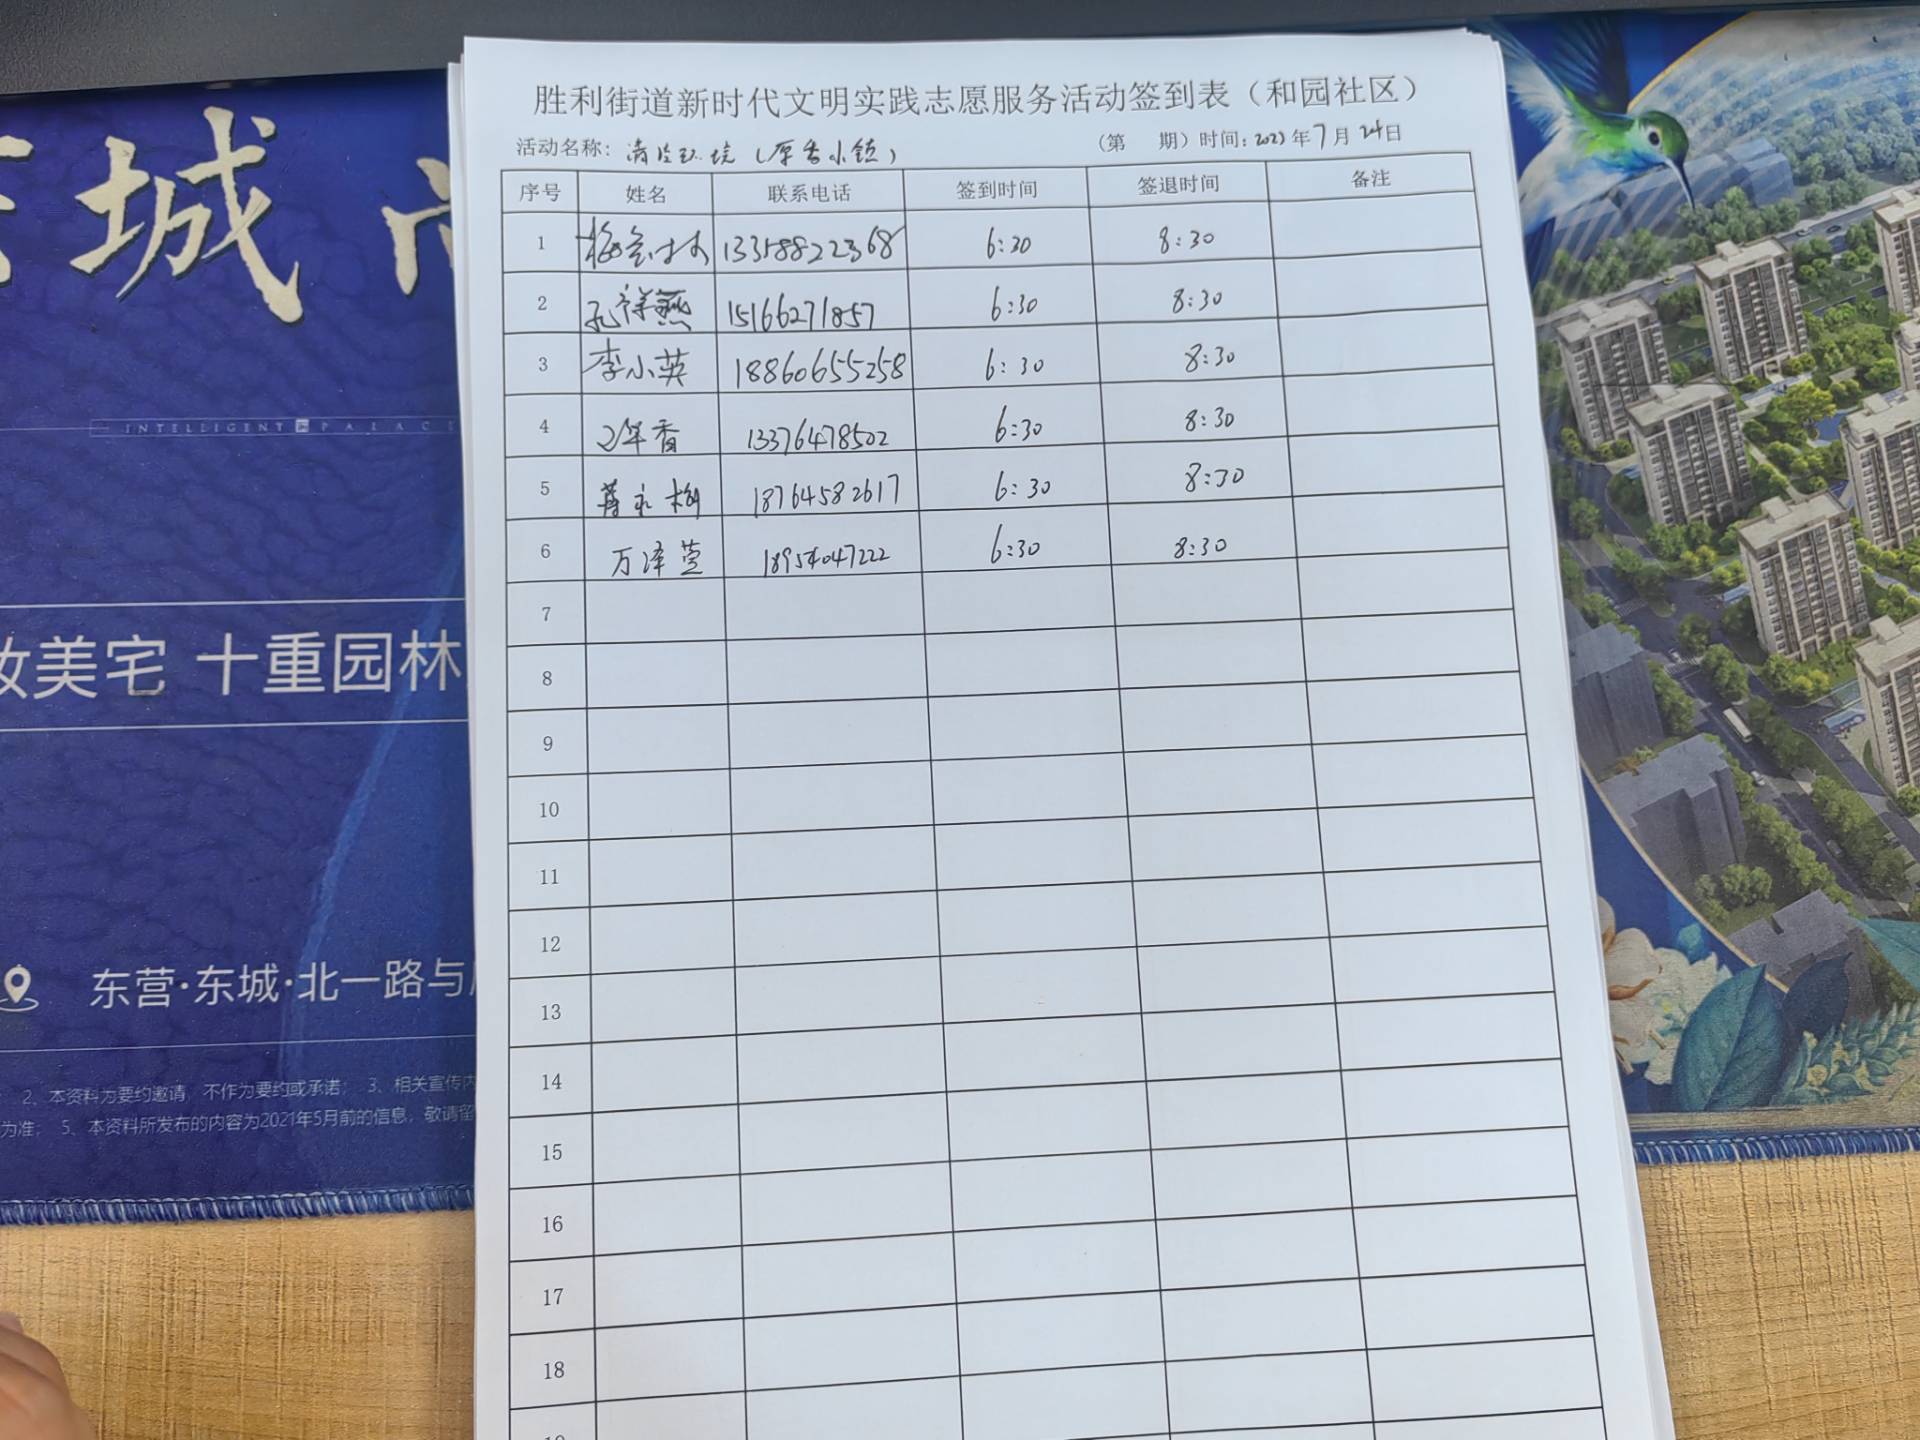 城
INTELLIGENT PALACE
妆美宅 十重园林
东营·东城·北一路与
2、本资料为要约邀请，不作为要约或承诺； 3、相关宣传内
为准； 5、本资料所发布的内容为2021年5月前的信息，敬请留
胜利街道新时代文明实践志愿服务活动签到表（和园社区）
活动名称：清洁环境（原香小镇） （第 期）时间：2023年7月24日
序号 姓名 联系电话 签到时间 签退时间 备注
1 13358822368 6:30 8:30
2 孔祥燕 15166271857 6:30 8:30
3 李小英 18860655258 6:30 8:30
4 香 13376478502 6:30 8:30
5 18764582617 6:30 8:30
6 万泽萱 18954047222 6:30 8:30
7
8
9
10
11
12
13
14
15
16
17
18